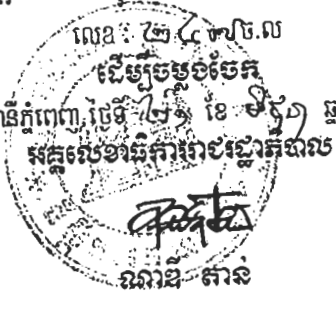 លេខ : ២៤៧ ច.ល
ដើម្បីចម្លងចែក
នីភ្នំពេញ, ថ្ងៃទី ២១ ខែ មិថុនា ឆ្នាំ
អគ្គលេខាធិការរាជរដ្ឋាភិបាល
ណាឌី តាន់